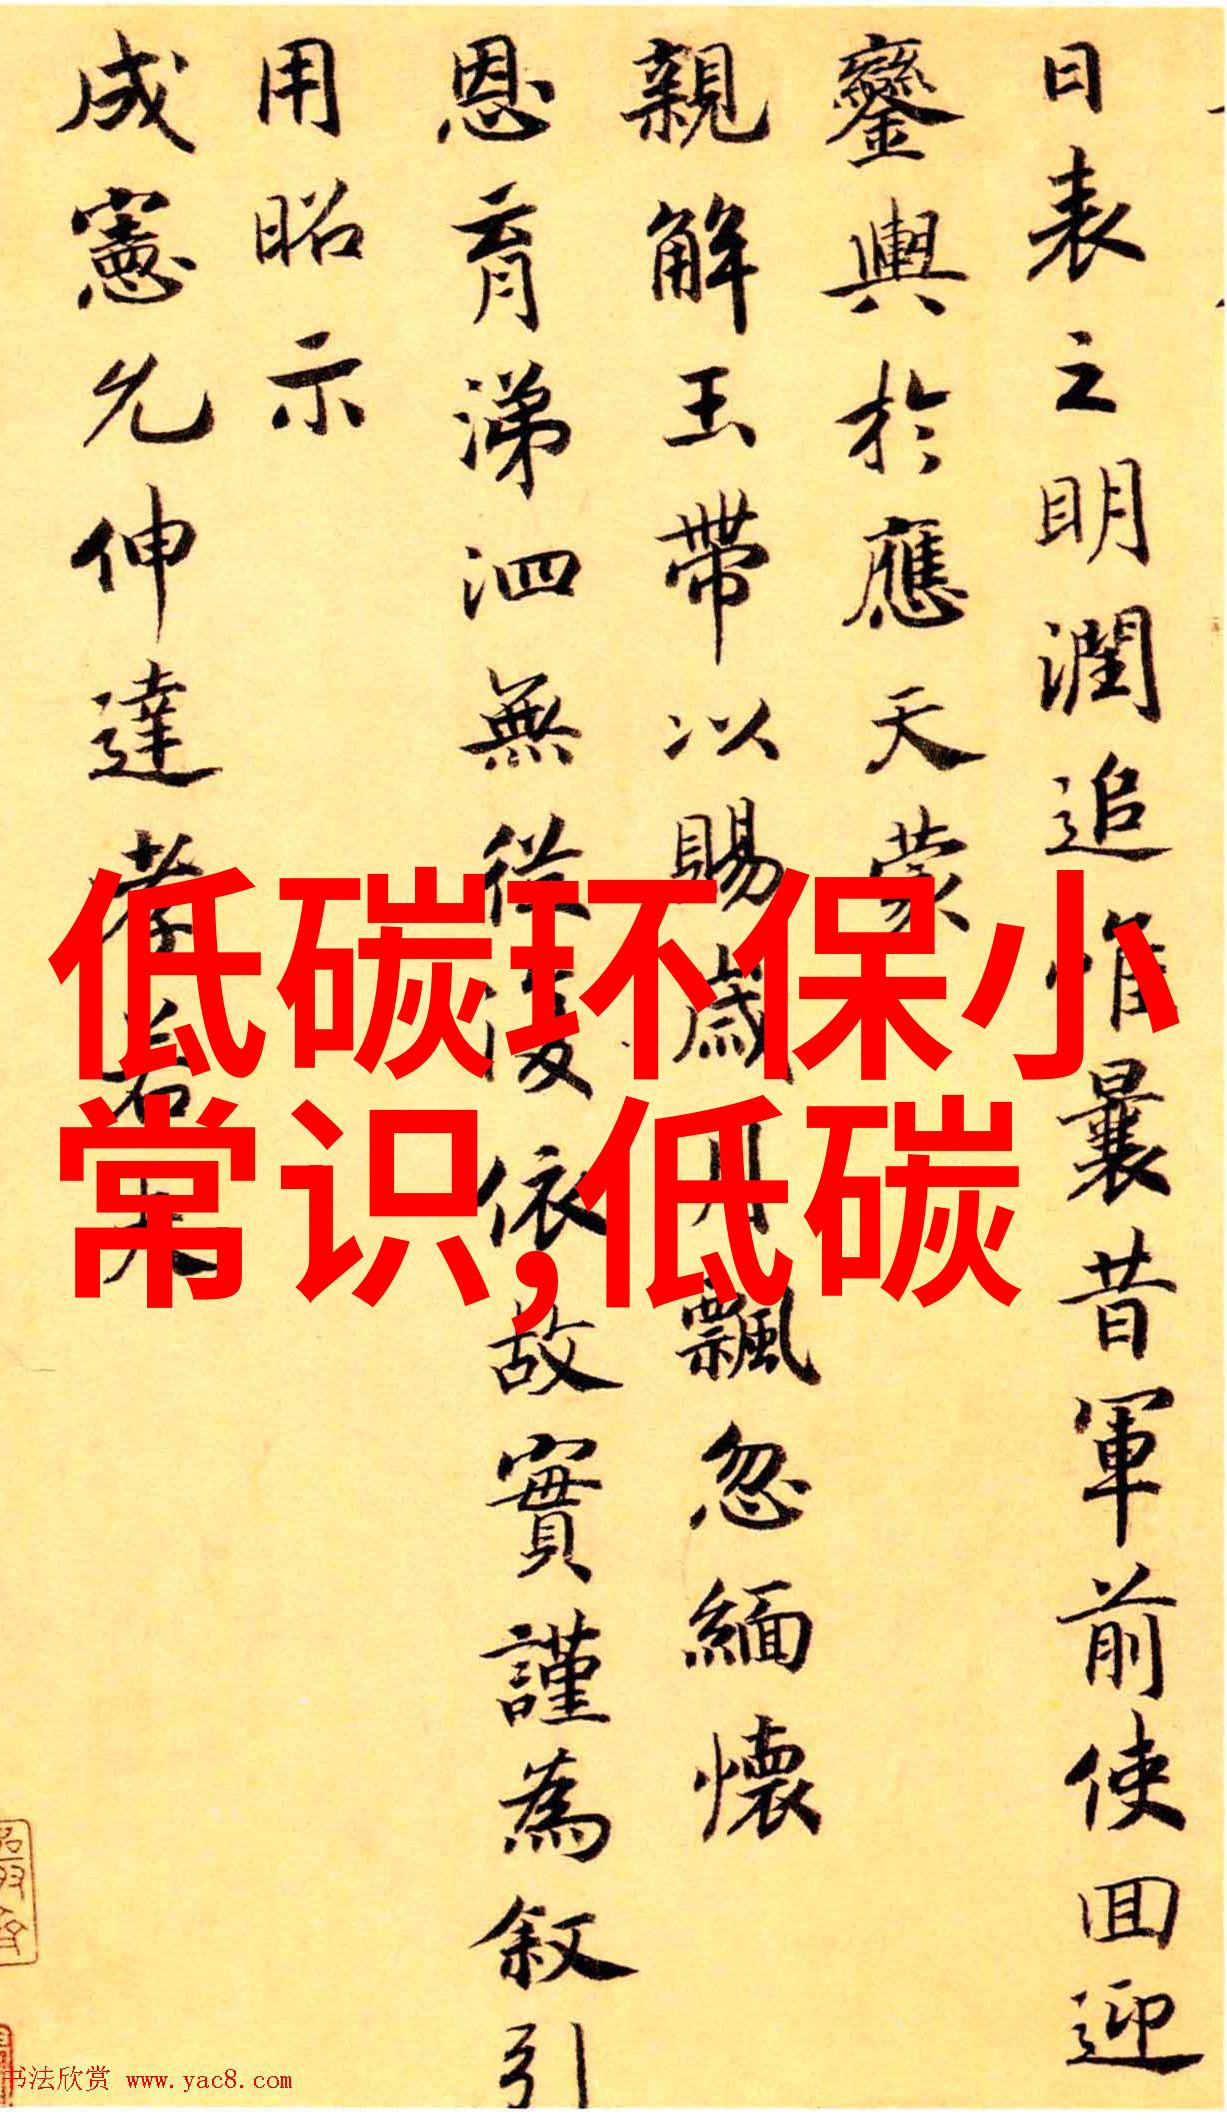 日表之明潤追惟曩昔軍前使回迎
鑾輿於應天蒙
親解玉帶以賜歲月飄忽緬懷
恩育涕泗無從復依故實謹為叙引
用昭示
成憲允伸達孝若夫
低碳环保小
常识,低碳
书法欣赏 www.yac8.com